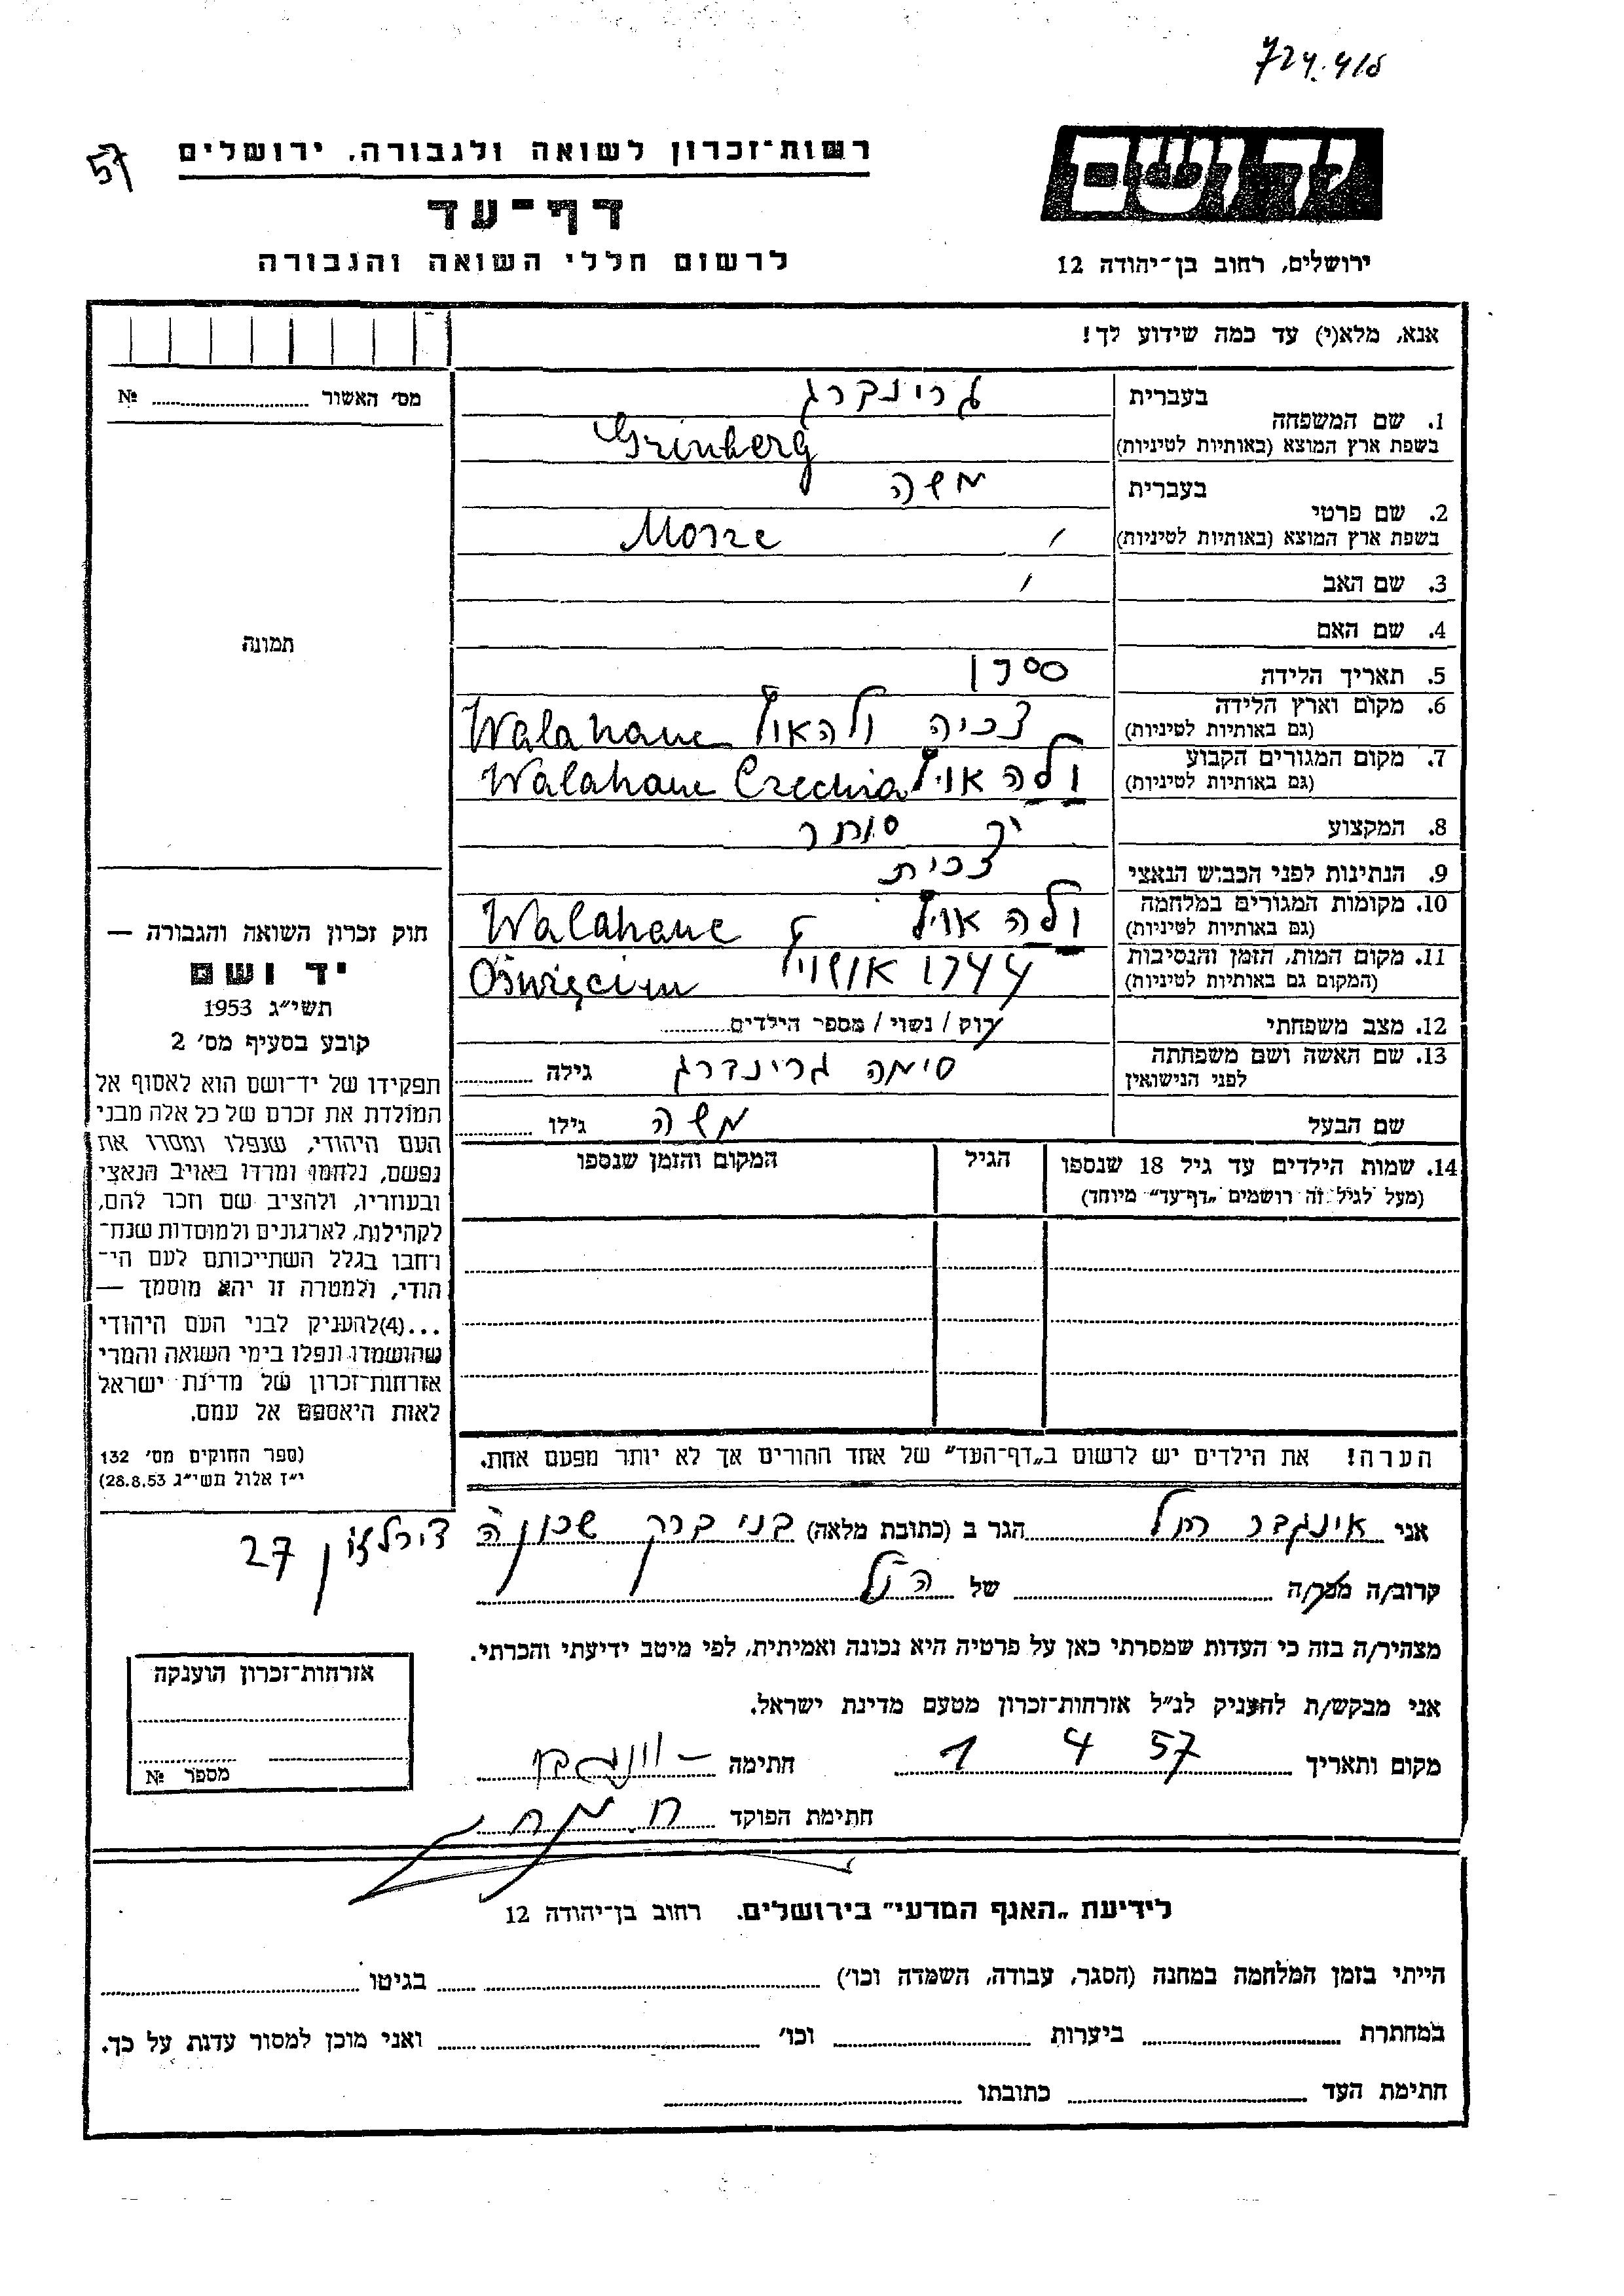 724.418
57
רשות־זכרון לשואה ולגבורה, ירושלים
ידושם
דף־עד
לרשום חללי השואה והגבורה
ירושלים, רחוב בן־יהודה 12
אנא, מלא(י) עד כמה שידוע לך!
מס' האשור № 
בעברית גרינברג
1. שם המשפחה
בשפת ארץ המוצא (באותיות לטיניות) Grinberg
בעברית משה
2. שם פרטי
בשפת ארץ המוצא (באותיות לטיניות) Morze
3. שם האב
4. שם האם
תמונה
5. תאריך הלידה 1900
6. מקום וארץ הלידה צכיה Walahane
(גם באותיות לטיניות)
7. מקום המגורים הקבוע Walahane Czechia
(גם באותיות לטיניות)
8. המקצוע סוחר
9. הנתינות לפני הכבוש הנאצי צכית
10. מקומות המגורים במלחמה Walahane
(גם באותיות לטיניות)
11. מקום המות, הזמן והנסיבות 1944 Oświęcim
(המקום גם באותיות לטיניות)
12. מצב משפחתי רוק / נשוי / מספר הילדים
13. שם האשה ושם משפחתה סימה גרינברג גילה
לפני הנישואין
שם הבעל משה גילו
14. שמות הילדים עד גיל 18 שנספו הגיל המקום והזמן שנספו
(מעל לגיל זה רושמים „דף־עד” מיוחד)
חוק זכרון השואה והגבורה —
יד ושם
תשי״ג 1953
קובע בסעיף מס' 2
תפקידו של יד־ושם הוא לאסוף אל
המולדת את זכרם של כל אלה מבני
העם היהודי, שנפלו ומסרו את
נפשם, נלחמו ומרדו באויב הנאצי
ובעוזריו, ולהציב שם וזכר להם,
לקהילות, לארגונים ולמוסדות שנח־
רחבו בגלל השתייכותם לעם הי־
הודי, ולמטרה זו יהא מוסמך —
...(4)להעניק לבני העם היהודי
שהושמדו ונפלו בימי השואה והמרי
אזרחות־זכרון של מדינת ישראל
לאות היאספם אל עמם.
(ספר החוקים מס' 132
י״ז אלול תשי״ג 28.8.53)
הערה! את הילדים יש לרשום ב„דף־העד” של אחד ההורים אך לא יותר מפעם אחת.
אני רחל הגר ב (כתובת מלאה) בני ברק שכונה 27
קרוב/ה מכר/ה של הנ״ל
מצהיר/ה בזה כי העדות שמסרתי כאן על פרטיה היא נכונה ואמיתית, לפי מיטב ידיעתי והכרתי.
אני מבקש/ת להעניק לנ״ל אזרחות־זכרון מטעם מדינת ישראל.
מקום ותאריך 1 4 57 חתימה
חתימת הפוקד
אזרחות־זכרון הוענקה
מספר №
לידיעת „האגף המדעי” בירושלים. רחוב בן־יהודה 12
הייתי בזמן המלחמה במחנה (הסגר, עבודה, השמדה וכו') בגיטו
במחתרת ביערות וכו' ואני מוכן למסור עדות על כך.
חתימת העד כתובתו